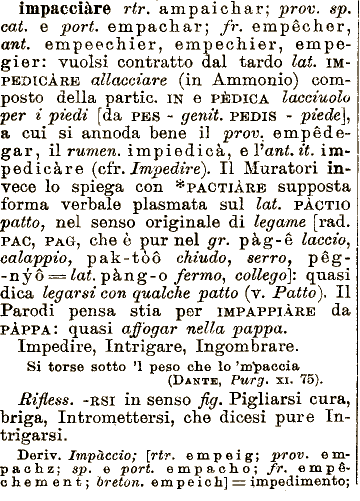 impacciàre rtr. ampaichar; prov. sp.
cat. e port. empachar; fr. empêcher,
ant. empeechier, empechier, empe-
gier: vuolsi contratto dal tardo lat. IM-
PEDICÀRE allacciare (in Ammonio) com-
posto della partic. IN e PÈDICA lacciuolo
per i piedi [da PES - genit. PEDIS - piede],
a cui si annoda bene il prov. empêde-
gar, il rumen. impiedicà, e l'ant. it. im-
pedicàre (cfr. Impedire). Il Muratori in-
vece lo spiega con *PACTIÀRE supposta
forma verbale plasmata sul lat. PÀCTIO
patto, nel senso originale di legame [rad.
PAC, PAG, che è pur nel gr. pàg-ê laccio,
calappio, pak-tòô chiudo, serro, pêg-
-nỳô = lat. pàng-o fermo, collego]: quasi
dica legarsi con qualche patto (v. Patto). Il
Parodi pensa stia per IMPAPPIÀRE da
PÀPPA: quasi affogar nella pappa.
Impedire, Intrigare, Ingombrare.
Si torse sotto 'l peso che lo 'm'paccia
(DANTE, Purg. XI. 75).
Rifless. -RSI in senso fig. Pigliarsi cura,
briga, Intromettersi, che dicesi pure In-
trigarsi.
Deriv. Impàccio; [rtr. empeig; prov. em-
pachz; sp. e port. empacho; fr. empê-
chement; breton. empeich] = impedimento;